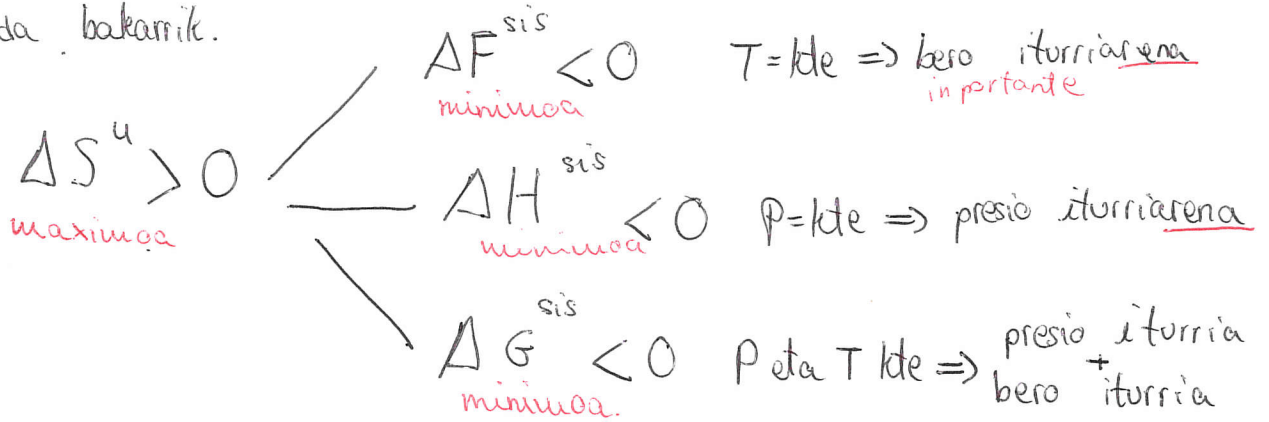 da bakarrik.
ΔF^sis < 0 T=kte => bero iturriarena
minimoa inportante
ΔS^u > 0
maximoa
ΔH^sis < 0 P=kte => presio iturriarena
minimoa
ΔG^sis < 0 P eta T kte => presio iturria + bero iturria
minimoa.